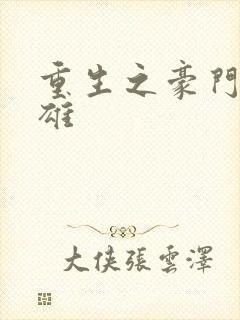 重生之豪門
雄
大俠張雲澤